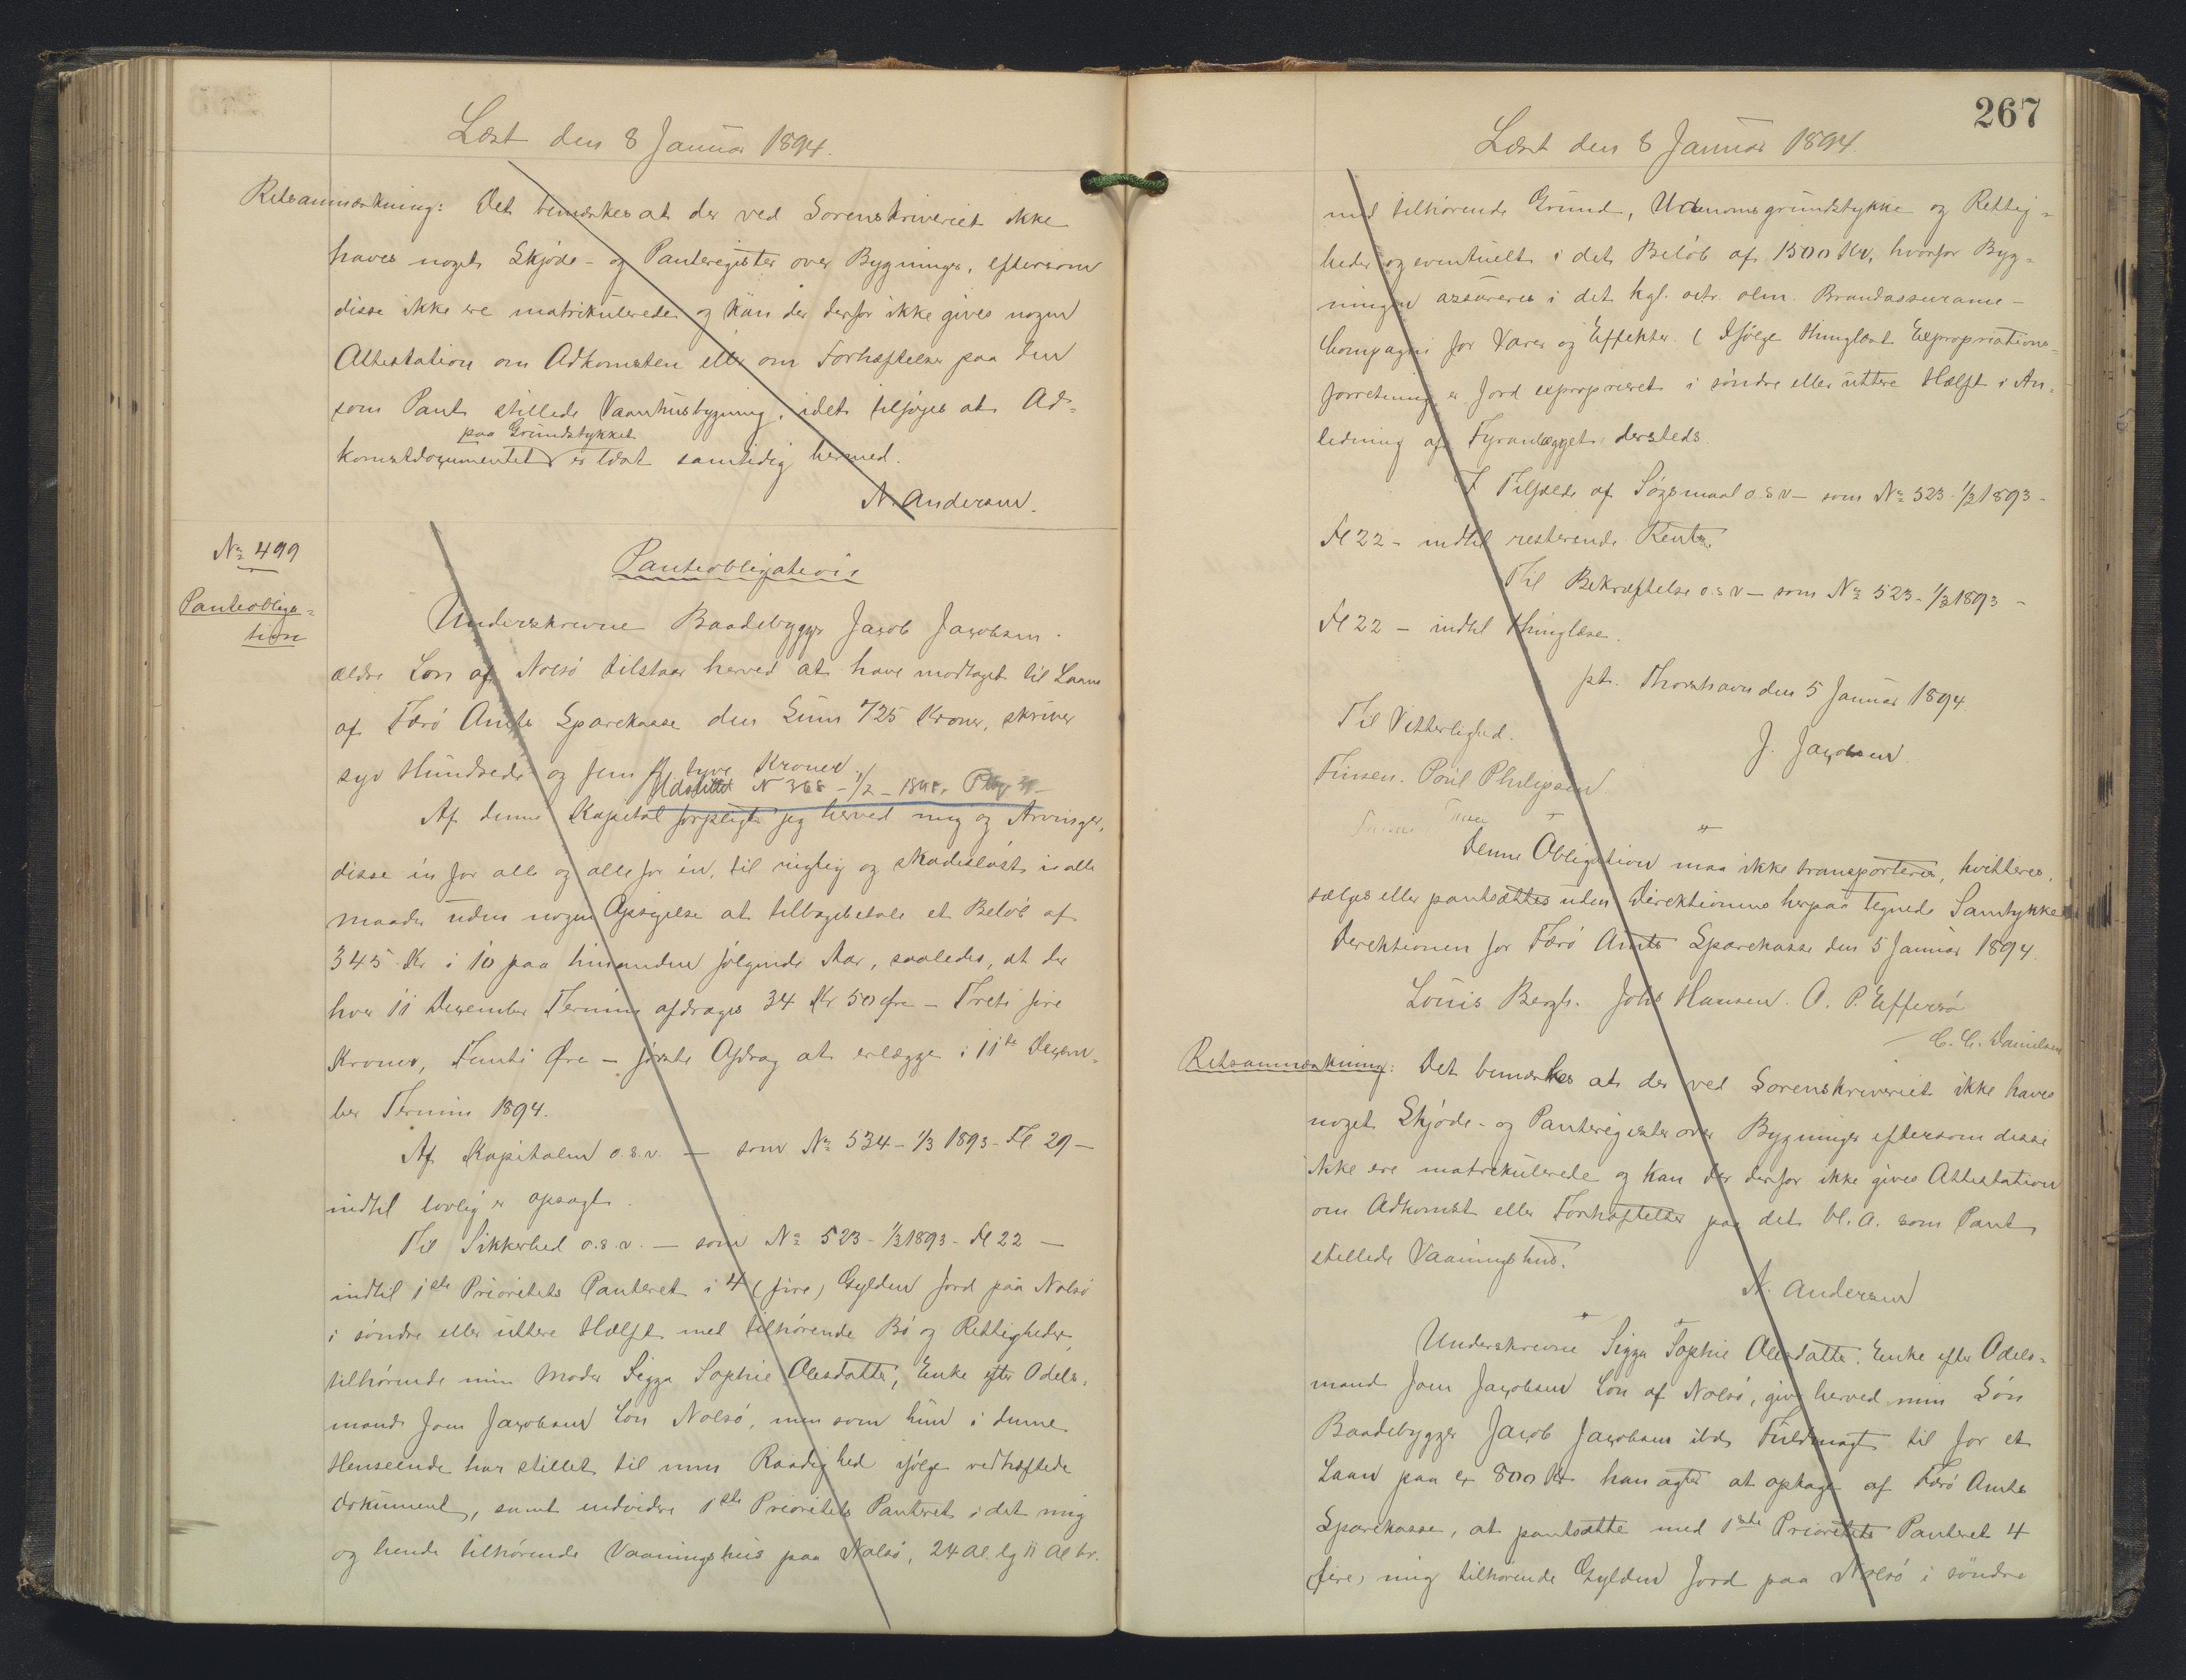 Læst den 8 Januar 1894.
Retsanmærkning: Det bemærkes at der ved Sorenskriveriet ikke
haves noget Skjøde- og Panteregister over Bygninger, eftersom
disse ikke ere matrikulerede og kan der derfor ikke gives nogen
Attestation om Adkomsten eller om Forhæftelser paa den
som Pant stillede Vaanhusbygning, idet tilføjes at Ad-
paa Grundstykket
komstdocumentet er læst samtidig hermed.
N. Andersen.
No 499
Panteobliga-
tion
Panteobligation
Underskrevne Baadebygger Jacob Jacobsen
ældre Søn af Nolsø tilstaar herved at have modtaget til Laans
af Færø Amts Sparekasse den Sum 725 Kroner, skriver
syv Hundrede og fem og tyve Kroner.
Udslettet N 368 - 1/2 -
Af denne Kapital forpligter jeg herved mig og Arvinger,
disse én for alle og alle for én, til rigtig og skadesløst i alle
Maader uden nogen Opsigelse at tilbagebetale et Beløb af
345 Kr i 10 paa hinanden følgende Aar, saaledes, at der
hver 11 December Termin afdrages 34 Kr 50 Øre - Treti fire
Kroner, Femti Øre - første Afdrag at erlægge i 11te Decem-
ber Termin 1894.
Af Kapitalen o.s.v. - som No 534 - 1/3 1893 - Fl 29 -
indtil lovlig er opsagt.
Til Sikkerhed o.s.v. - som No 523 - 1/3 1893 - Fl 22 -
indtil 1ste Prioritets Panteret i 4 (fire) Gylden Jord paa Nolsø
i søndre eller uttere Hælft med tilhørende Bø og Rettigheder,
tilhørende min Moder Sigga Sophie Olesdatter, Enke efter Odels-
mand Joen Jacobsen Søn Nolsø, men som hun i denne
Henseende har stillet til min Raadighed ifølge vedhæftede
Dokument, samt endvidere 1ste Prioritets Panteret i det mig
og hende tilhørende Vaaningshus paa Nolsø, 24 Al. lg 11 Al br.
267
Læst den 8 Januar 1894.
med tilhørende Grund, Udenomsgrundstykke og Rettig-
heder og eventuelt i det Beløb af 1500 Kr, hvorfor Byg-
ningen assureres i det kgl. octr. alm. Brandassurance-
Compagni for Varer og Effekter. (Ifølge thinglæst Expropriations-
forretning er Jord exproprieret i søndre eller uttere Hælft i An-
ledning af Fyranlægget dersteds.
I Tilfælde af Søgsmaal o.s.v - som No 523 - 1/3 1893 -
Fl 22 - indtil resterende Renter.
Til Bekræftelse o.s.v - som No 523 - 1/3 1893 -
Fl 22 - indtil thinglæse.
pt. Thorshavn den 5 Januar 1894.
Til Vitterlighed.
J. Jacobsen.
Finsen. Poul Philipsen.
Denne Obligation maa ikke transporteres, kvitteres,
sælges eller pantsættes uden Direktionens herpaa tegnede Samtykke
Direktionen for Færø Amts Sparekasse den 5 Januar 1894.
Louis Bergh. Johs Hansen. O. P. Effersø
C. C. Danielsen
Retsanmærkning: Det bemærkes at der ved Sorenskriveriet ikke haves
noget Skjøde- og Panteregister over Bygninger eftersom disse
ikke ere matrikulerede og kan der derfor ikke gives Attestation
om Adkomst eller Forhæftelser paa det bl. a. som Pant
stillede Vaaningshus.
N. Andersen
Underskrevne Sigga Sophie Olesdatter. Enke efter Odels-
mand Joen Jacobsen Søn af Nolsø, giver herved min Søn
Baadebygger Jacob Jacobsen ibd. Fuldmagt til for et
Laan paa er 800 Kr han agter at optage af Færø Amts
Sparekasse, at pantsætte med 1ste Prioritets Panteret 4
(fire) mig tilhørende Gylden Jord paa Nolsø i søndre